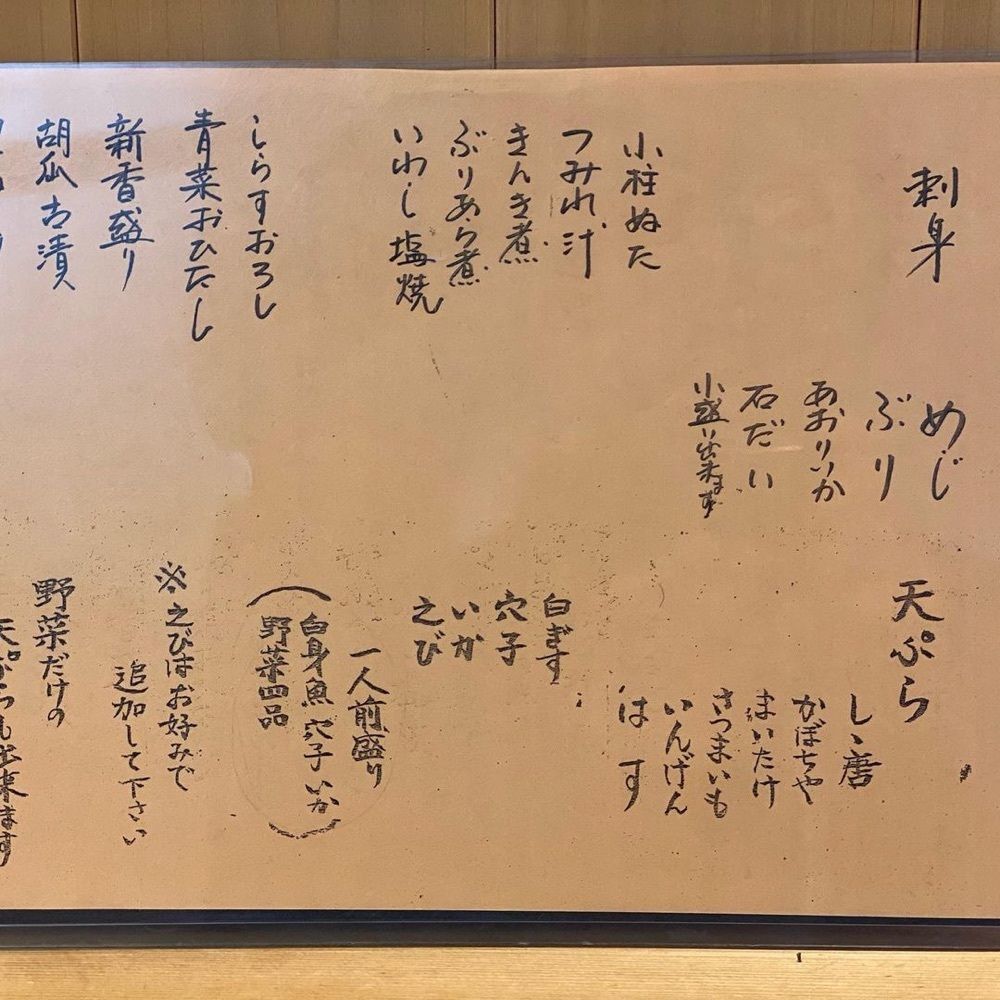 刺身
めじ
ぶり
あおりいか
石だい
小盛り出来ます
小柱ぬた
つみれ汁
きんき煮
ぶりあら煮
いわし塩焼
しらすおろし
青菜おひたし
新香盛り
胡瓜古漬
天ぷら
しゝ唐
かぼちゃ
まいたけ
さつまいも
いんげん
はす
白ぎす
穴子
いか
えび
一人前盛り
(白身魚 穴子 いか
野菜四品)
※えびはお好みで
追加して下さい
野菜だけの
天ぷらも出来ます